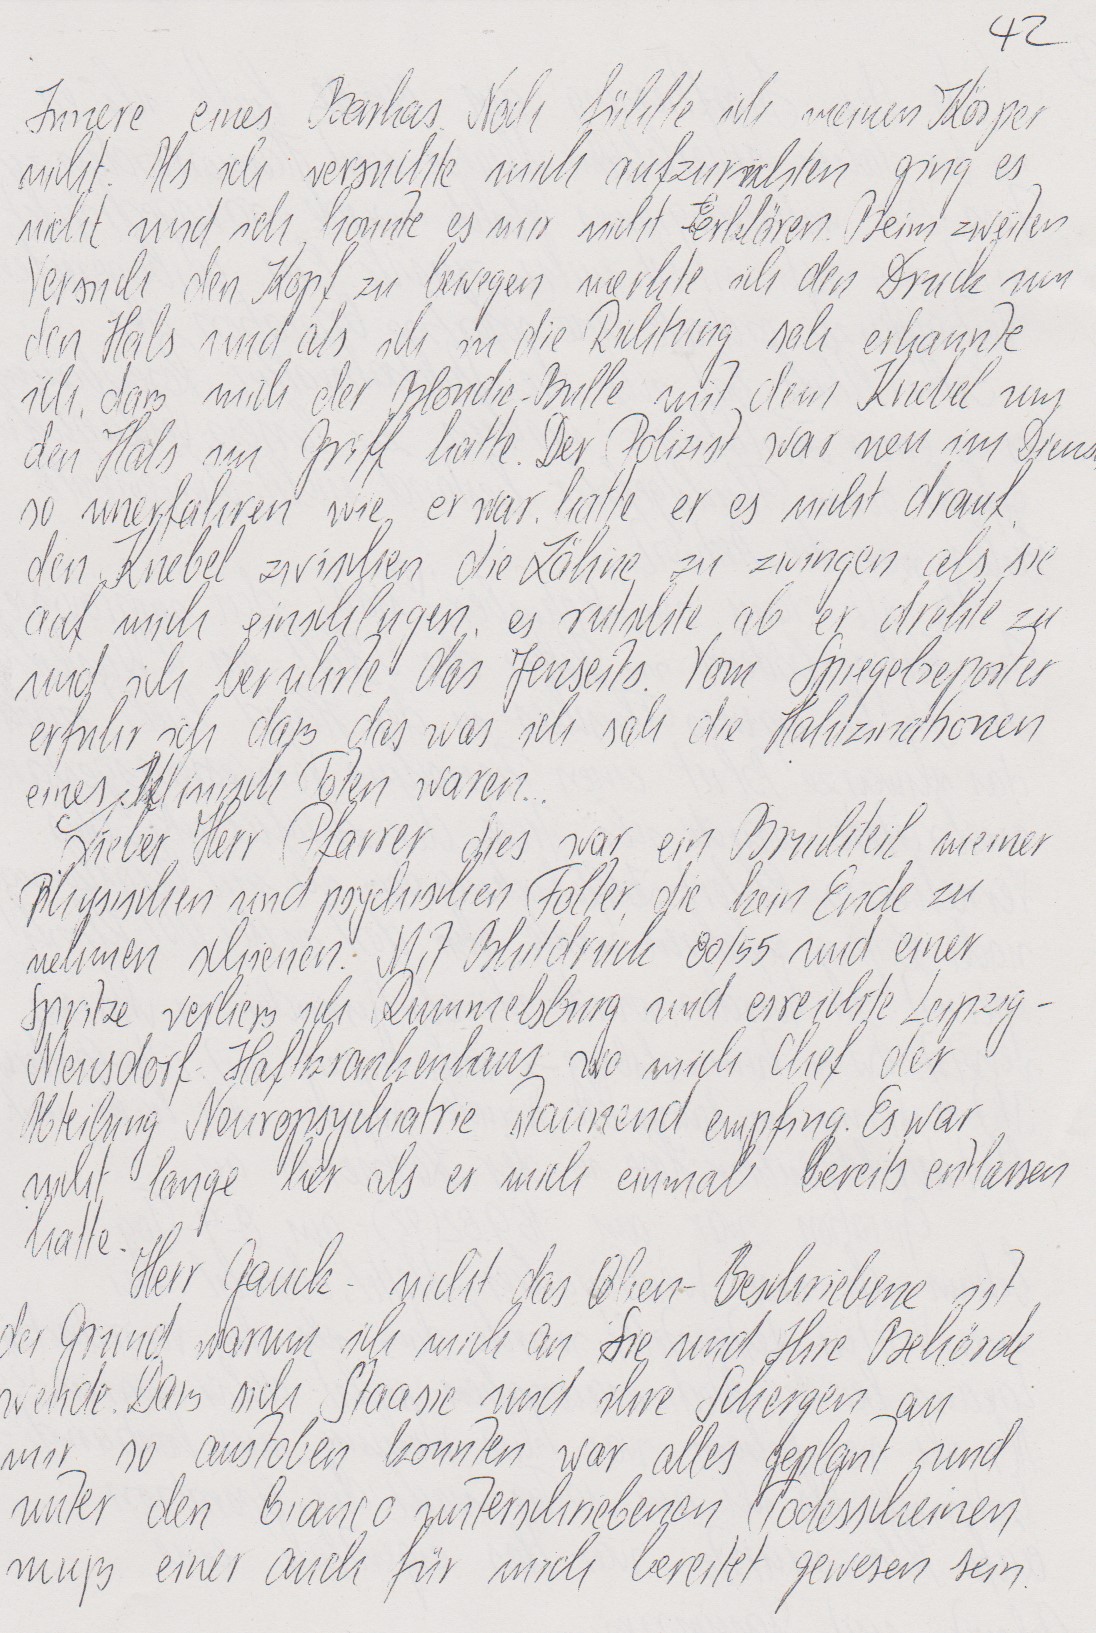 42
Innere eines Barkas. Noch fühlte ich meinen Körper
nicht. Als ich versuchte mich aufzurichten ging es
nicht und ich konnte es mir nicht Erklären. Beim zweiten
Versuch den Kopf zu bewegen merkte ich den Druck um
den Hals und als ich in die Richtung sah erkannte
ich, daß mich der Blonde-Bulle mit dem Knebel um
den Hals im Griff hatte. Der Polizist war neu im Dienst
so unerfahren wie er war, hatte er es nicht drauf,
den Knebel zwischen die Zähne zu zwingen als sie
auf mich einschlugen, es rutschte ab er drehte zu
und ich beruhrte das Jenseits. Vom Spiegelreporter
erfuhr ich daß das was ich sah die Haluzinationen
eines Klinisch Toten waren...
Lieber Herr Pfarrer dies war ein Bruchteil meiner
Phusischen und psychischen Folter, die kein Ende zu
nehmen schienen. Mit Blutdruck 80/55 und einer
Spritze verließ ich Rummelsburg und erreichte Leipzig-
Meusdorf-Haftkrankenhaus wo mich Chef der
Abteilung Neuropsychiatrie staunend empfing. Es war
nicht lange her als er mich einmal bereits entlassen
hatte.
Herr Gauck - nicht das Oben-Beschriebene ist
der Grund warum ich mich an Sie und Ihre Behörde
wende. Daß sich Staasie und ihre Schergen an
mir so austoben konnten war alles geplant und
unter den Bianco unterschriebenen Todesscheinen
muß einer auch für mich bereitet gewesen sein.